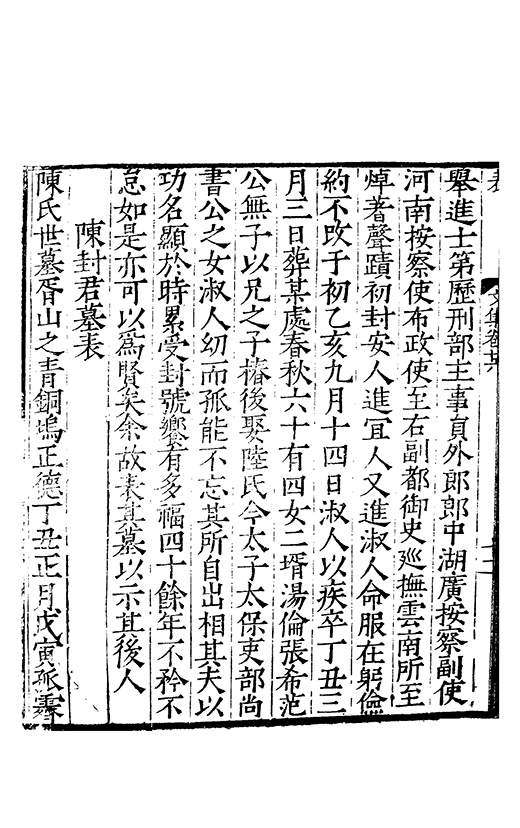 文集卷
舉進士第歷刑部主事員外郎郎中湖廣按察副使
河南按察使布政使至右副都御史廵撫雲南所至
焯著聲蹟初封安人進冝人又進淑人命服在躬儉
約不改于初乙亥九月十四日淑人以疾卒丁丑三
月三日葬某處春秋六十有四女二壻湯倫張希范
公無子以兄之子椿後娶陸氏今太子太保吏部尚
書公之女淑人㓜而孤能不忘其所自出相其夫以
功名顯於時累受封號饗有多福四十餘年不矜不
怠如是亦可以爲賢矣余故表其墓以示其後人
陳封君墓表
陳氏世墓胥山之青銅塢正德丁丑正月戊寅孤霽